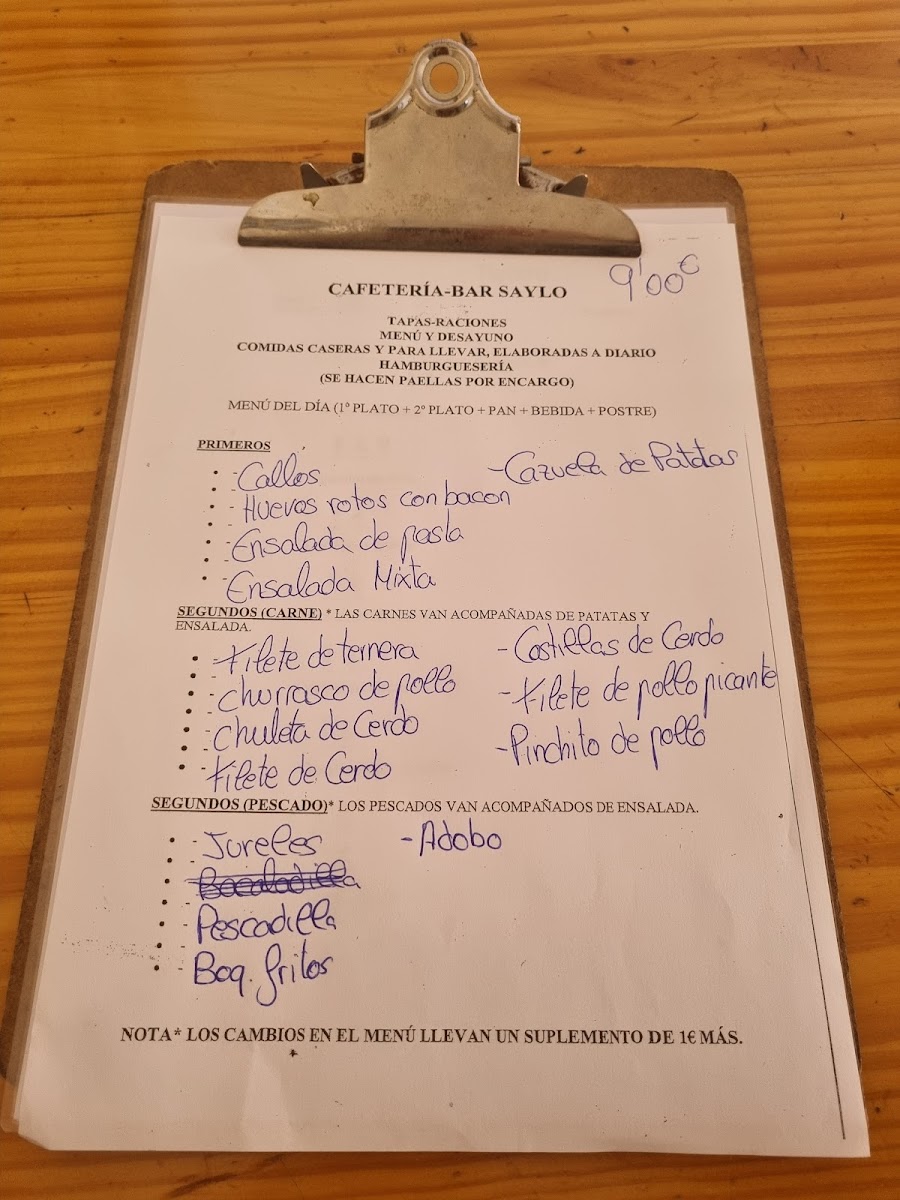 9'00€
CAFETERÍA-BAR SAYLO
TAPAS-RACIONES
MENÚ Y DESAYUNO
COMIDAS CASERAS Y PARA LLEVAR, ELABORADAS A DIARIO
HAMBURGUESERÍA
(SE HACEN PAELLAS POR ENCARGO)
MENÚ DEL DÍA (1º PLATO + 2º PLATO + PAN + BEBIDA + POSTRE)
PRIMEROS
- Callos
- Huevos rotos con bacon
- Ensalada de pasta
- Ensalada Mixta
- Cazuela de Patatas
SEGUNDOS (CARNE) * LAS CARNES VAN ACOMPAÑADAS DE PATATAS Y
ENSALADA.
- Filete de ternera
- Churrasco de pollo
- Chuleta de Cerdo
- Filete de Cerdo
- Costillas de Cerdo
- Filete de pollo picante
- Pinchito de pollo
SEGUNDOS (PESCADO)* LOS PESCADOS VAN ACOMPAÑADOS DE ENSALADA.
- Jureles
- Bacaladilla
- Pescadilla
- Boq. fritos
- Adobo
NOTA* LOS CAMBIOS EN EL MENÚ LLEVAN UN SUPLEMENTO DE 1€ MÁS.